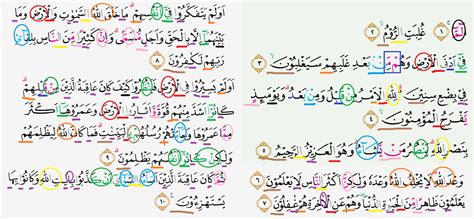 الۤمّۤ ۝١ غُلِبَتِ الرُّوْمُۙ ۝٢
فِيْٓ اَدْنَى الْاَرْضِ وَهُمْ مِّنْۢ بَعْدِ غَلَبِهِمْ سَيَغْلِبُوْنَۙ ۝٣
فِيْ بِضْعِ سِنِيْنَ ەۗ لِلّٰهِ الْاَمْرُ مِنْ قَبْلُ وَمِنْۢ بَعْدُ ۗوَيَوْمَىِٕذٍ
يَّفْرَحُ الْمُؤْمِنُوْنَۙ ۝٤
بِنَصْرِ اللّٰهِ ۗيَنْصُرُ مَنْ يَّشَاۤءُۗ وَهُوَ الْعَزِيْزُ الرَّحِيْمُۙ ۝٥
وَعْدَ اللّٰهِ ۗ لَا يُخْلِفُ اللّٰهُ وَعْدَهٗ وَلٰكِنَّ اَكْثَرَ النَّاسِ لَا يَعْلَمُوْنَ ۝٦
يَعْلَمُوْنَ ظَاهِرًا مِّنَ الْحَيٰوةِ الدُّنْيَاۖ وَهُمْ عَنِ الْاٰخِرَةِ هُمْ غٰفِلُوْنَ ۝٧
اَوَلَمْ يَتَفَكَّرُوْا فِيْٓ اَنْفُسِهِمْ ۗ مَا خَلَقَ اللّٰهُ السَّمٰوٰتِ وَالْاَرْضَ وَمَا
بَيْنَهُمَآ اِلَّا بِالْحَقِّ وَاَجَلٍ مُّسَمًّىۗ وَاِنَّ كَثِيْرًا مِّنَ النَّاسِ بِلِقَاۤئِ
رَبِّهِمْ لَكٰفِرُوْنَ ۝٨
اَوَلَمْ يَسِيْرُوْا فِى الْاَرْضِ فَيَنْظُرُوْا كَيْفَ كَانَ عَاقِبَةُ الَّذِيْنَ مِنْ قَبْلِهِمْۗ
كَانُوْٓا اَشَدَّ مِنْهُمْ قُوَّةً وَّاَثَارُوا الْاَرْضَ وَعَمَرُوْهَآ اَكْثَرَ
مِمَّا عَمَرُوْهَا وَجَاۤءَتْهُمْ رُسُلُهُمْ بِالْبَيِّنٰتِۗ فَمَا كَانَ اللّٰهُ لِيَظْلِمَهُمْ
وَلٰكِنْ كَانُوْٓا اَنْفُسَهُمْ يَظْلِمُوْنَۗ ۝٩
ثُمَّ كَانَ عَاقِبَةَ الَّذِيْنَ اَسَاۤءُوا السُّوْۤاٰىٓ اَنْ كَذَّبُوْا بِاٰيٰتِ اللّٰهِ وَكَانُوْا بِهَا
يَسْتَهْزِءُوْنَ ۝١٠